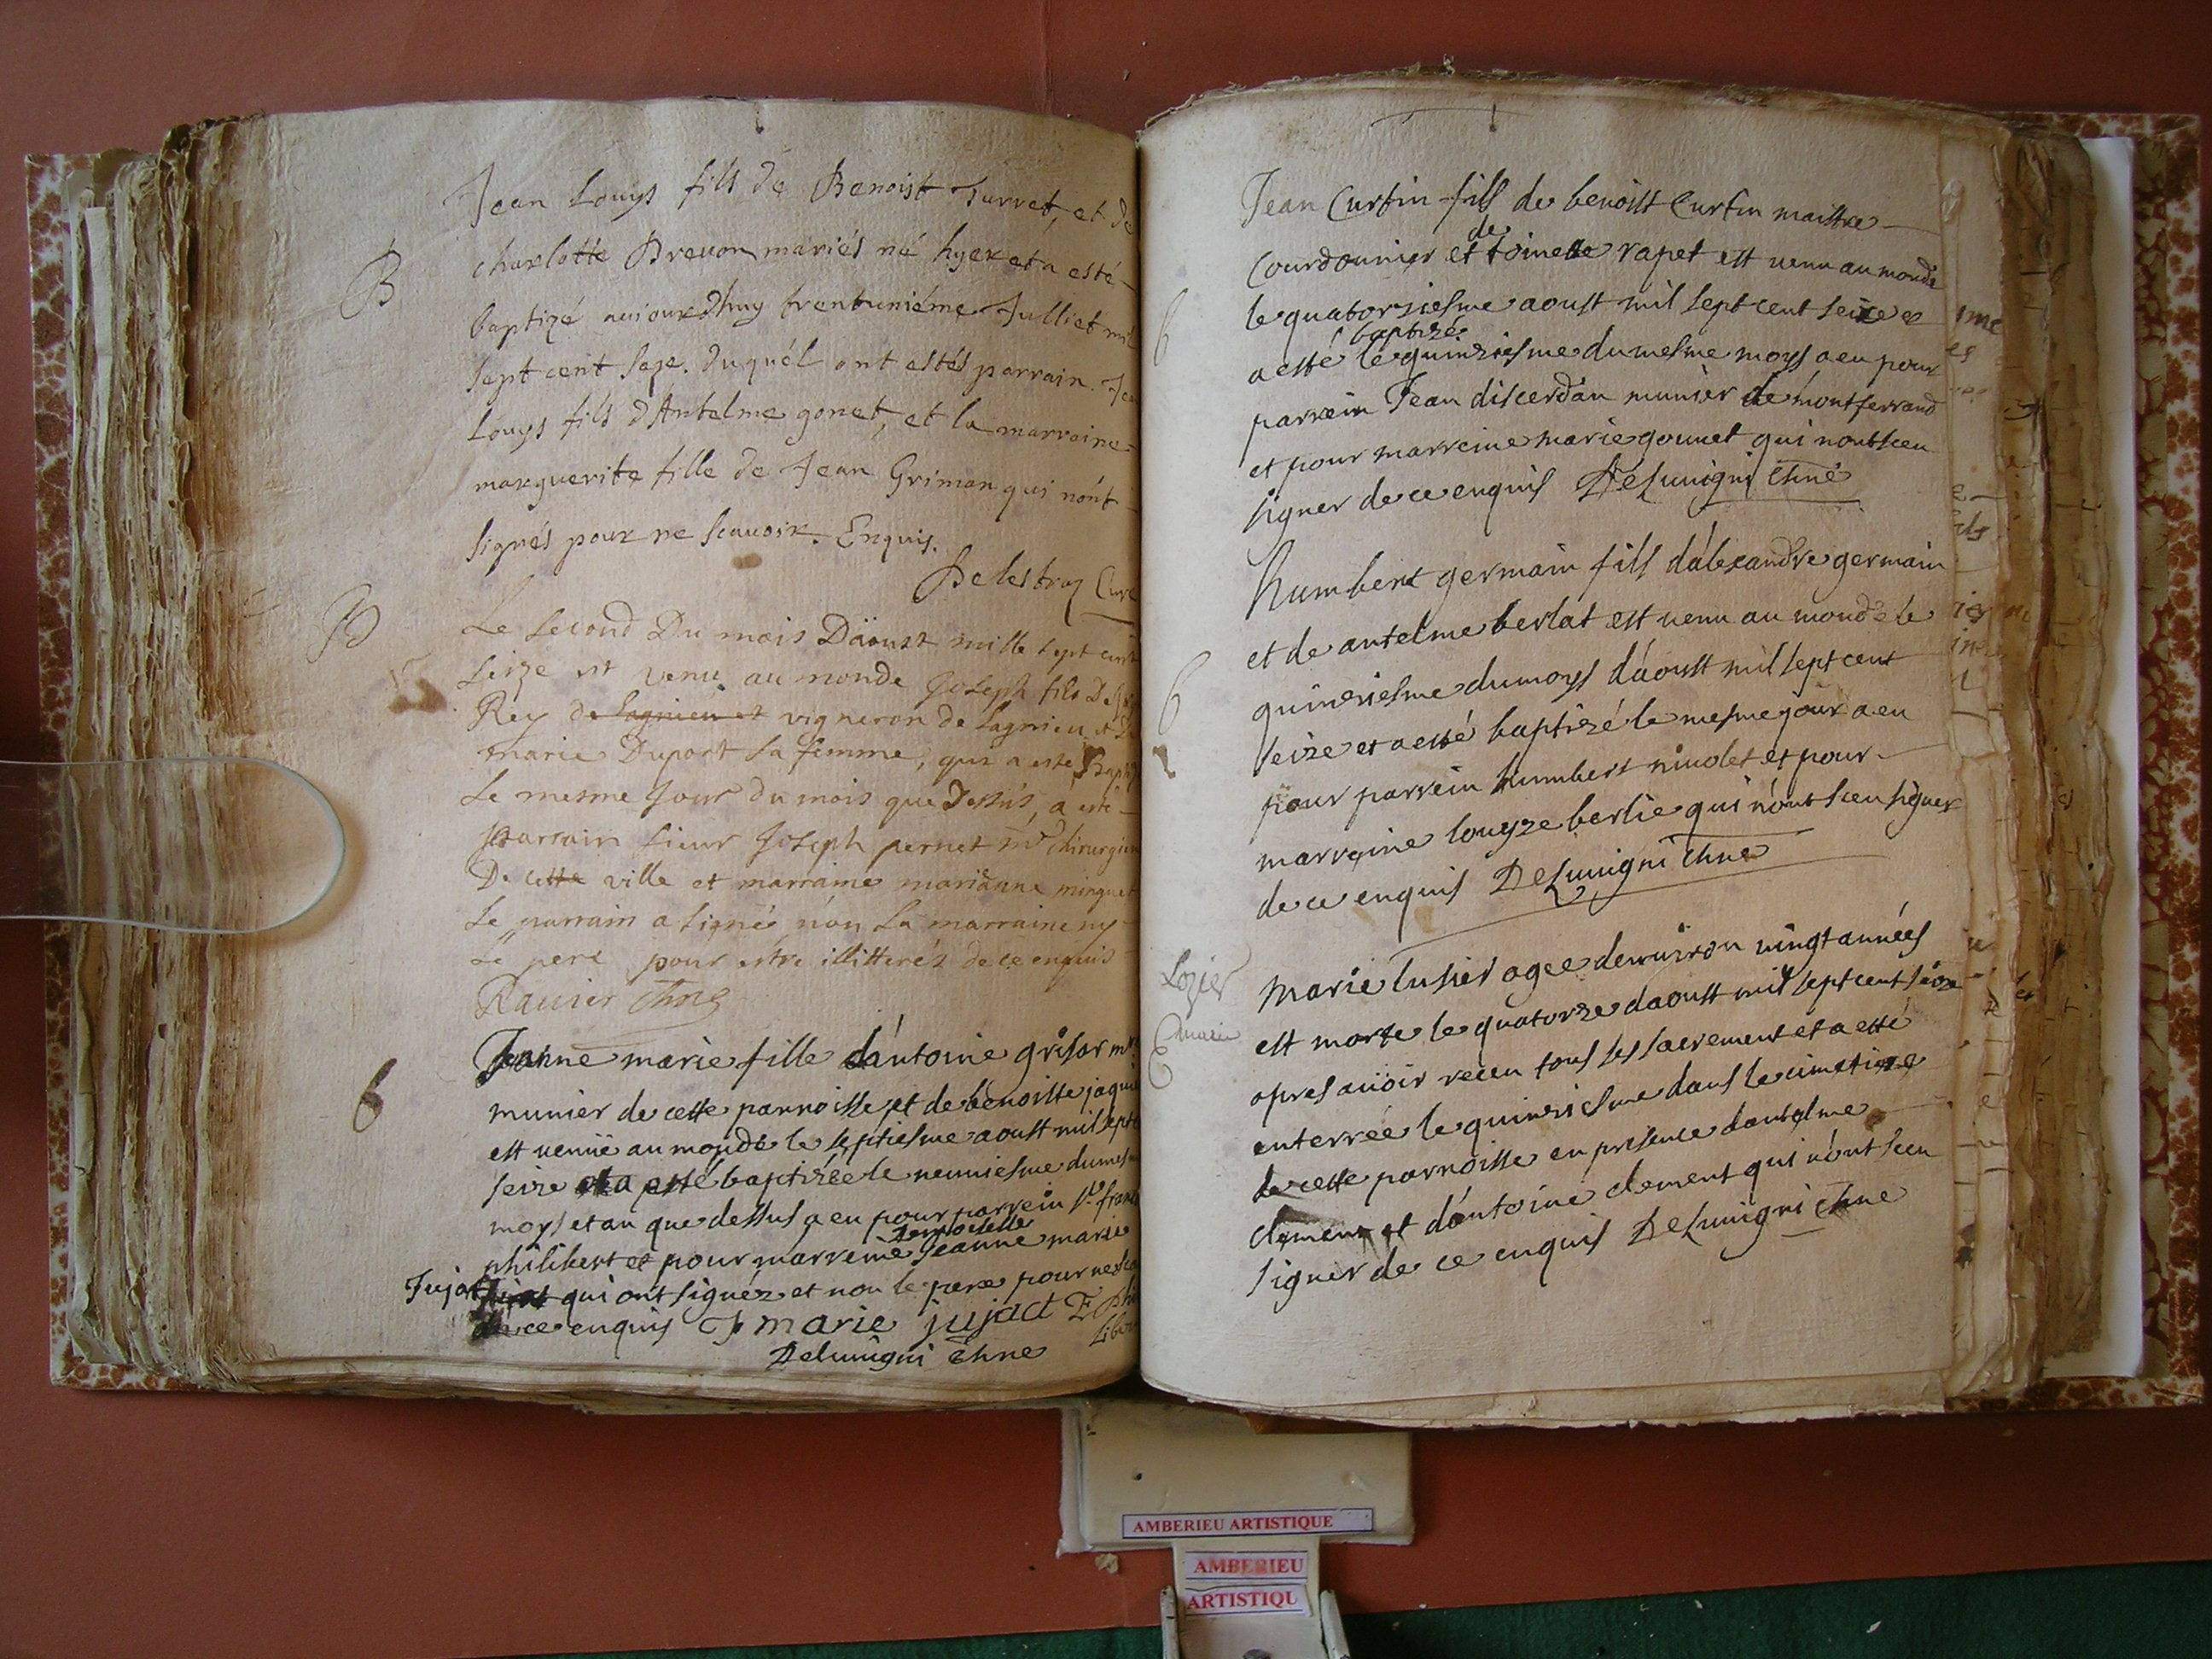 Jean Louys fils de Benoist Turret, et de
B
charlotte Brevon mariés né hyer et a esté
baptizé aujourdhuy trentuniéme Julliet mil
sept cent saze. duquél ont estés parrain. Jea
Louys fils d'Antelme gonet, et la marraine
marguerite fille de Jean Griman qui nónt
signés pour ne scauoir. Enquis.
Delestraz Curé
B
Le second Du mois D'äoust mille sept cent
seize est venu au monde Joseph fils De
Rey de lagnieu et vigneron de lagnieu et De
marie Duport sa femme, qui a este Bapti
Le mesme Jour du mois que Dessus, à esté
parrain sieur Joseph pernet mre chirurgien
De cette ville et marraine marianne minguet
Le parrain a signé non La marraine ny
Le pere pour estre illitterés de ce enquis
Rauier
6
Jeanne marie fille dántoine grisor
munier de cette parroisse et de bénoitte jaqui
est venuë au monde le septiesme aoust mil sept c
seize et a esté baptizée le neuuiesme du mesm
moys et an que dessus a eu pour parrein Sr fran
demoiselle
philibert et pour marreine Jeanne marie
Jujat qui ont signéz et non le pere pour ne sca
de ce enquis J marie jujact F Phi
libe
Deluuigni
Jean Curtin fils de benoist Curtin maistre
de
Courdounier et toinette rapet est uenu au monde
6
le quatorziesme aoust mil sept cent seize et
baptizé
a esté le quinziesme du mesme moys a eu pour
parrein Jean discerdan munier de montferrand
et pour marreine marie gonnet qui nont sceu
signer de ce enquis Deluuigni
humbert germain fils dálexandre germain
et de antelme berlat est uenu au monde le
6
quinziesme du moys dáoust mil sept cent
seize et a esté baptizé le mesme jour a eu
pour parrein humbert niuolet et pour
marreine louyze berlie qui nónt sceu signer
de ce enquis Deluuigni
Lozier
marie
marie lusier agee denuiron uingt années
est morte le quatorze daoust mil sept cent seize
apres auoir receu tous ses sacrement et a esté
enterrée le quinziesme dans le cimetiere
de cette parroisse en presence dantelme
clement et dántoine clement qui nónt sceu
signer de ce enquis Deluuigni
AMBERIEU ARTISTIQUE
AMBERIEU
ARTISTIQU